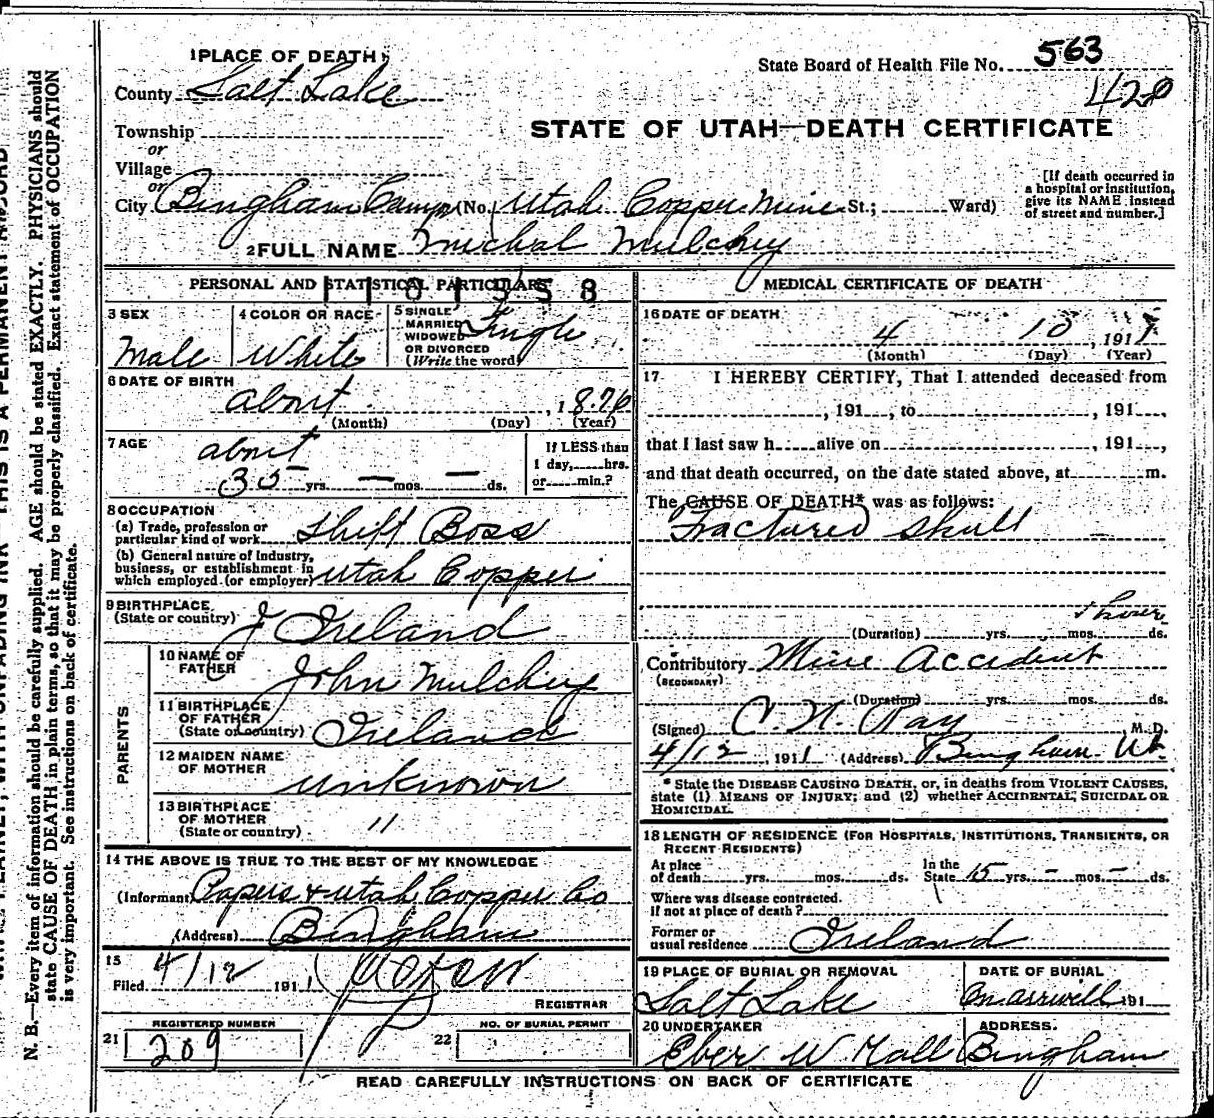 1 PLACE OF DEATH
State Board of Health File No. 563
County Salt Lake
420
Township
STATE OF UTAH—DEATH CERTIFICATE
or
Village
or
City Bingham Camp (No. Utah Copper Mine St.; Ward)
[If death occurred in a hospital or institution, give its NAME instead of street and number.]
2 FULL NAME Michal Mulchey
PERSONAL AND STATISTICAL PARTICULARS
3 SEX
Male
4 COLOR OR RACE
White
5 SINGLE
MARRIED
WIDOWED
OR DIVORCED
(Write the word)
Single
6 DATE OF BIRTH
about , 1876
(Month) (Day) (Year)
7 AGE
about
35 yrs. — mos. — ds.
If LESS than
1 day, hrs.
or min.?
8 OCCUPATION
(a) Trade, profession or
particular kind of work Shift Boss
(b) General nature of Industry,
business, or establishment in
which employed (or employer) Utah Copper
9 BIRTHPLACE
(State or country) Ireland
PARENTS
10 NAME OF
FATHER John Mulchey
11 BIRTHPLACE
OF FATHER
(State or country) Ireland
12 MAIDEN NAME
OF MOTHER unknown
13 BIRTHPLACE
OF MOTHER
(State or country) "
14 THE ABOVE IS TRUE TO THE BEST OF MY KNOWLEDGE
(Informant Papers & Utah Copper Co
(Address) Bingham
15
Filed 4/12 1911
REGISTRAR
21 REGISTERED NUMBER
209
22 NO. OF BURIAL PERMIT
MEDICAL CERTIFICATE OF DEATH
16 DATE OF DEATH
4 10 , 1911
(Month) (Day) (Year)
17 I HEREBY CERTIFY, That I attended deceased from
, 191 , to , 191 ,
that I last saw h alive on , 191 ,
and that death occurred, on the date stated above, at m.
The CAUSE OF DEATH* was as follows:
Fractured Skull
1 hour
(Duration) yrs. mos. ds.
Contributory Mine Accident
(SECONDARY)
(Duration) yrs. mos. ds.
(Signed) C. N. Ray M. D.
4/12 , 1911 (Address) Bingham Ut.
* State the DISEASE CAUSING DEATH, or, in deaths from VIOLENT CAUSES,
state (1) MEANS OF INJURY; and (2) whether ACCIDENTAL, SUICIDAL OR
HOMICIDAL.
18 LENGTH OF RESIDENCE (FOR HOSPITALS, INSTITUTIONS, TRANSIENTS, OR
RECENT RESIDENTS)
At place
of death yrs. mos. ds.
In the
State 15 yrs. - mos. - ds.
Where was disease contracted.
if not at place of death?
Former or
usual residence Ireland
19 PLACE OF BURIAL OR REMOVAL
Salt Lake
DATE OF BURIAL
191
20 UNDERTAKER
Eber W Hall
ADDRESS.
Bingham
READ CAREFULLY INSTRUCTIONS ON BACK OF CERTIFICATE
N. B.—Every item of information should be carefully supplied. AGE should be stated EXACTLY. PHYSICIANS should
state CAUSE OF DEATH in plain terms, so that it may be properly classified. Exact statement of OCCUPATION
is very important. See instructions on back of certificate.